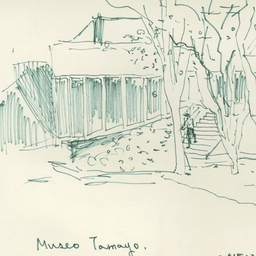 Museo Tamayo.